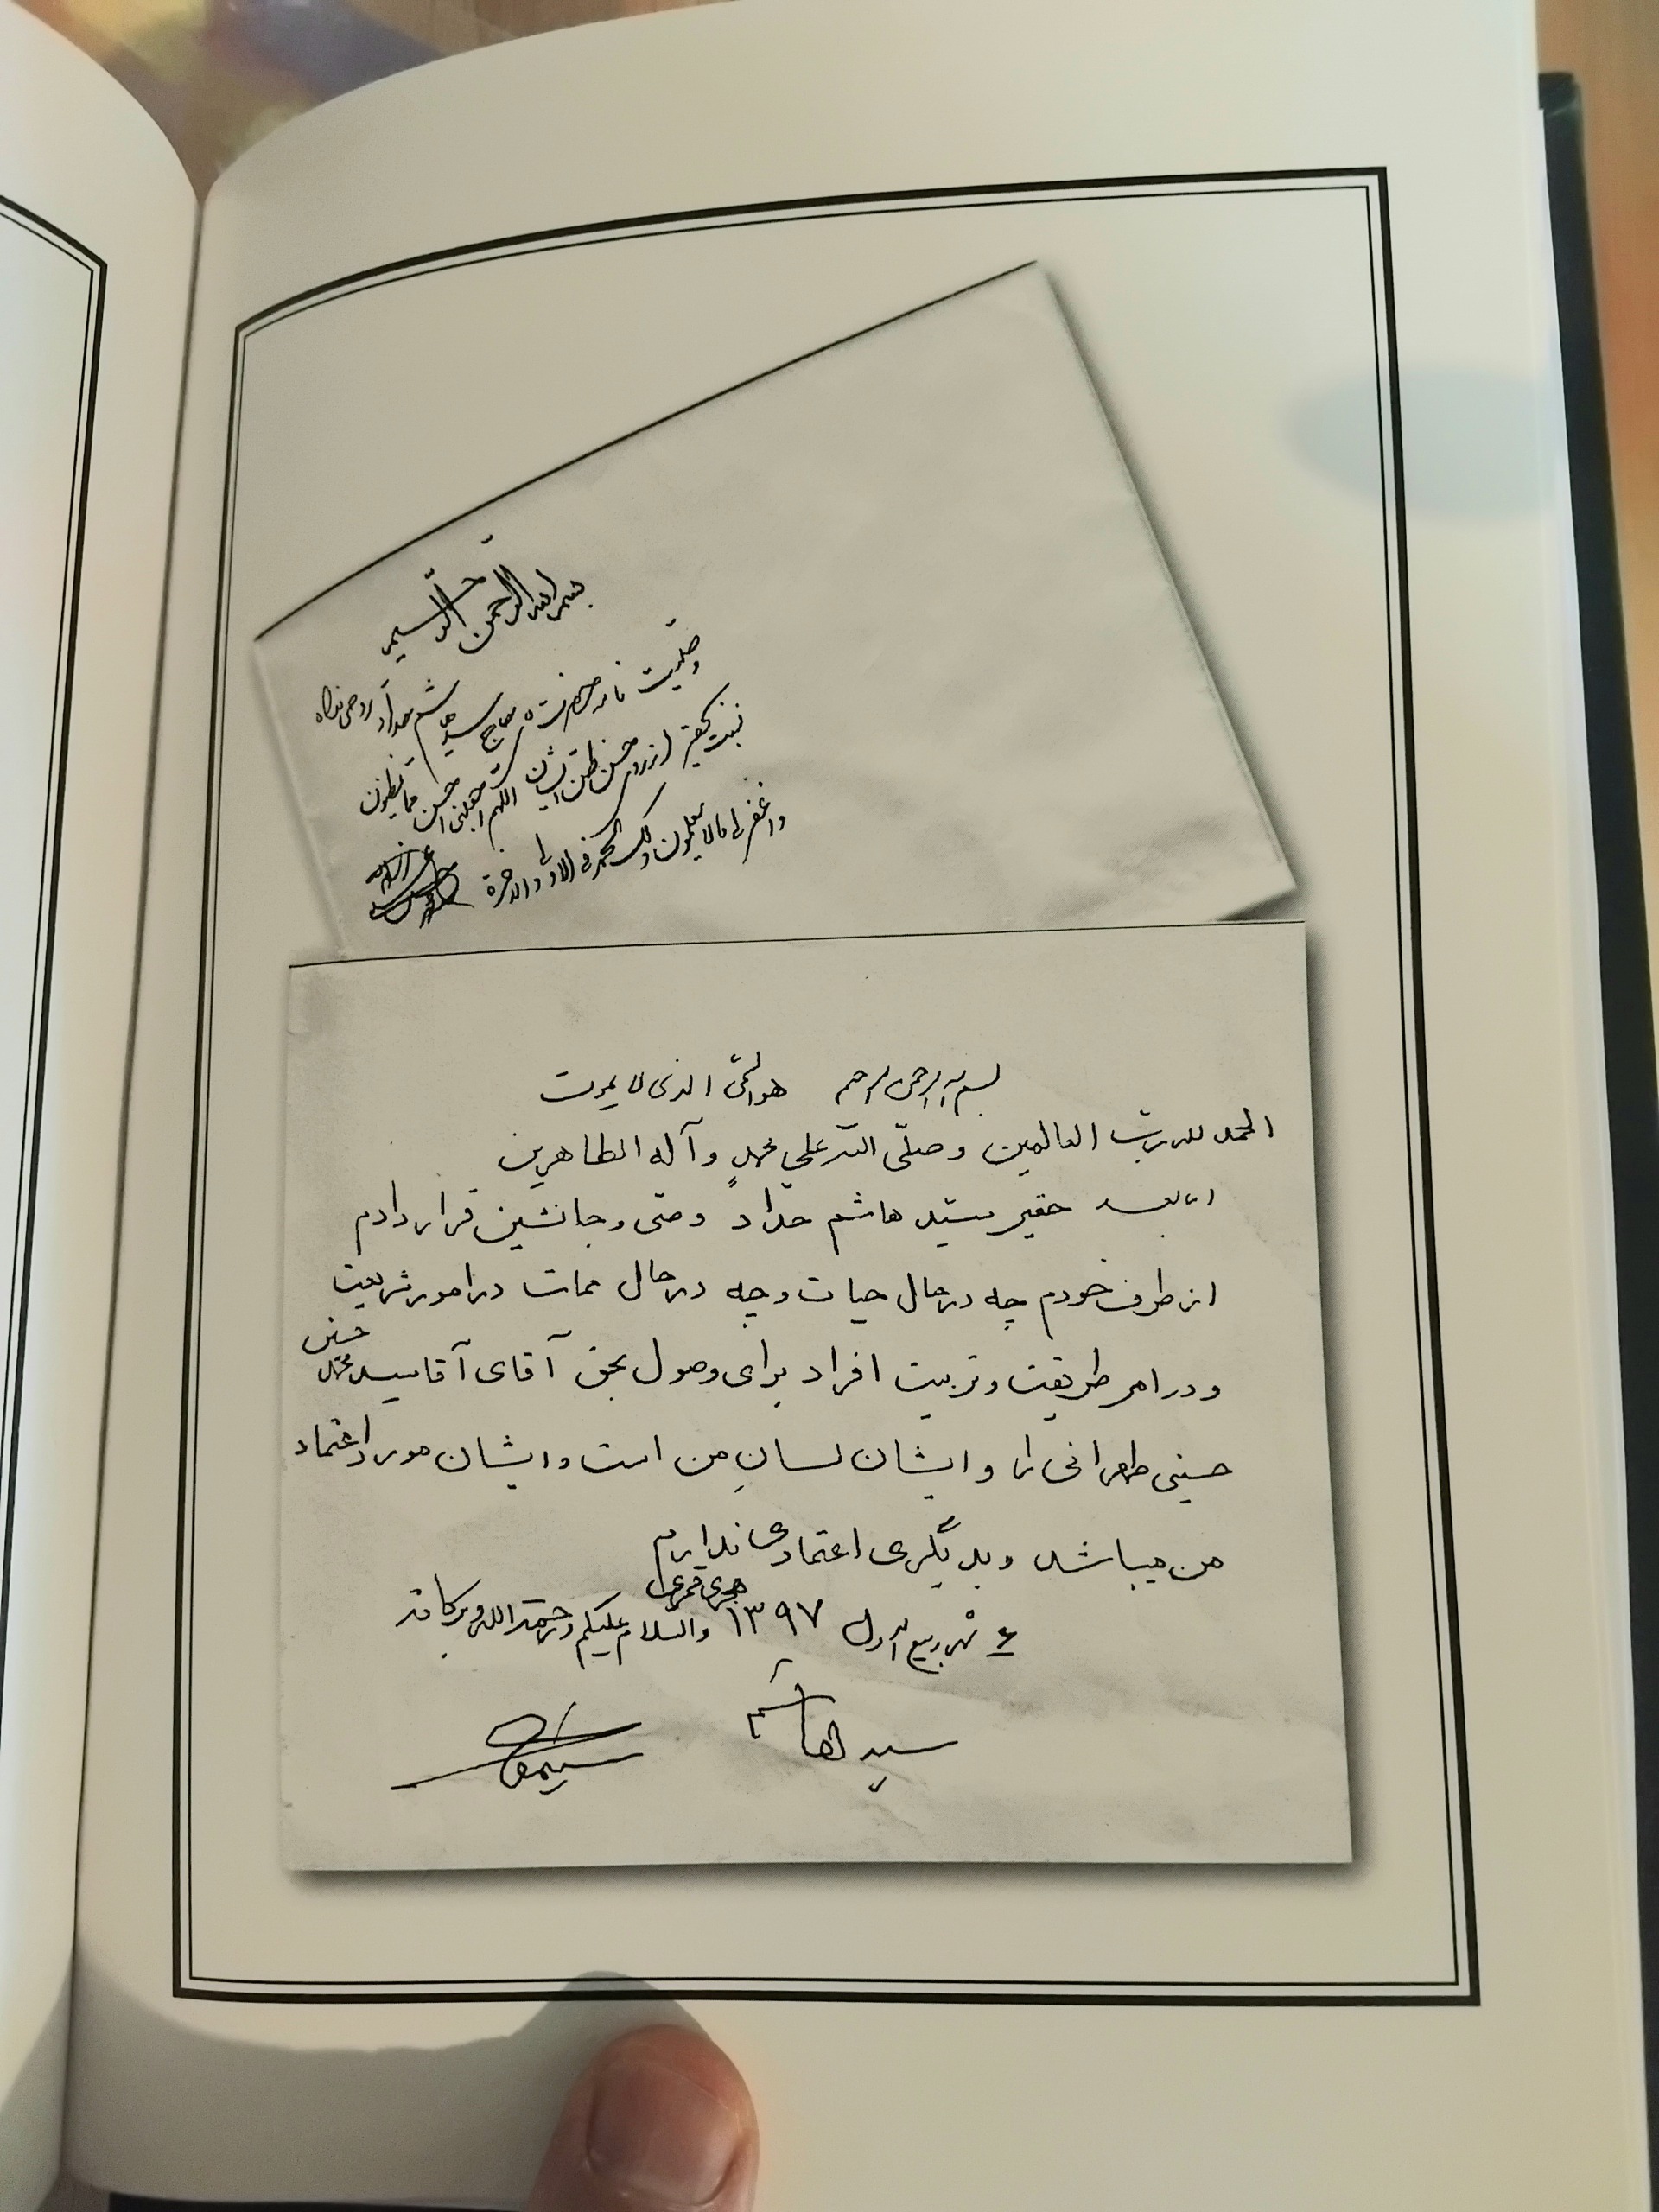 بسم الله الرحمن الرحیم
وصیت نامه حضرت حاج سید هاشم حداد روحی فداه
نسبت بحقیر از روی حسن ظن ایشان است اللهم اجعلنی احسن مما یظنون
واغفر لی ما لا یعلمون ولک الحمد فی الاولی والاخرة
بسم الله الرحمن الرحیم هو الحیّ الذی لا یموت
الحمد لله ربّ العالمین وصلّی الله علی محمدٍ وآله الطاهرین
اما بعد حقیر سیّد هاشم حدّاد وصّی و جانشین قرار دادم
از طرف خودم چه در حال حیات و چه در حال ممات در امور شریعت
و در امر طریقت و تربیت افراد برای وصول بحق آقای آقا سید محمّد حسین
حسینی طهرانی را و ایشان لسانِ من است و ایشان مورد اعتماد
من میباشد و بدیگری اعتمادی ندارم
شهر ربیع الاول ۱۳۹۷ هجری قمری والسّلام علیکم ورحمة الله وبرکاته
سید هاشم